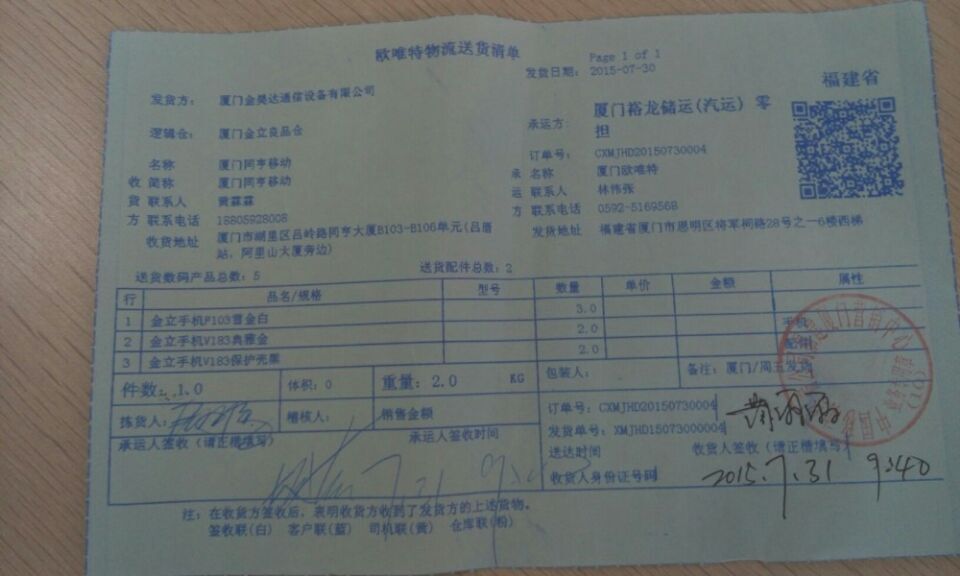 欧唯特物流送货清单
Page 1 of 1
发货日期： 2015-07-30
福建省
发货方： 厦门金昊达通信设备有限公司
承运方： 厦门裕龙储运(汽运) 零担
逻辑仓： 厦门金立良品仓
订单号： CXMJHD20150730004
名称 厦门同亨移动
承 名称 厦门欧唯特
收 简称 厦门同亨移动
运 联系人 林伟张
货 联系人 黄霖霖
方 联系电话 0592-5169568
方 联系电话 18805928008
发货地址 福建省厦门市思明区将军祠路28号之一6楼西梯
收货地址 厦门市湖里区吕岭路同亨大厦B103-B106单元(吕厝站，阿里山大厦旁边)
送货数码产品总数：5 送货配件总数：2
行 品名/规格 型号 数量 单价 金额 属性
1 金立手机F103雪金白 3.0 手机
2 金立手机V183典雅金 2.0
3 金立手机V183保护壳黑 2.0
件数：1.0 体积：0 重量：2.0 KG 包装人： 备注：厦门/周五发货
拣货人： 稽核人： 销售金额 订单号：CXMJHD20150730004
发货单号：XMJHD15073000004
承运人签收（请正楷填写） 承运人签收时间 送达时间 收货人签收（请正楷填写）
收货人身份证号码
7.31
2015.7.31 9:40
注：在收货方签收后，表明收货方收到了发货方的上述货物。
签收联(白) 客户联(蓝) 司机联(黄) 仓库联(粉)